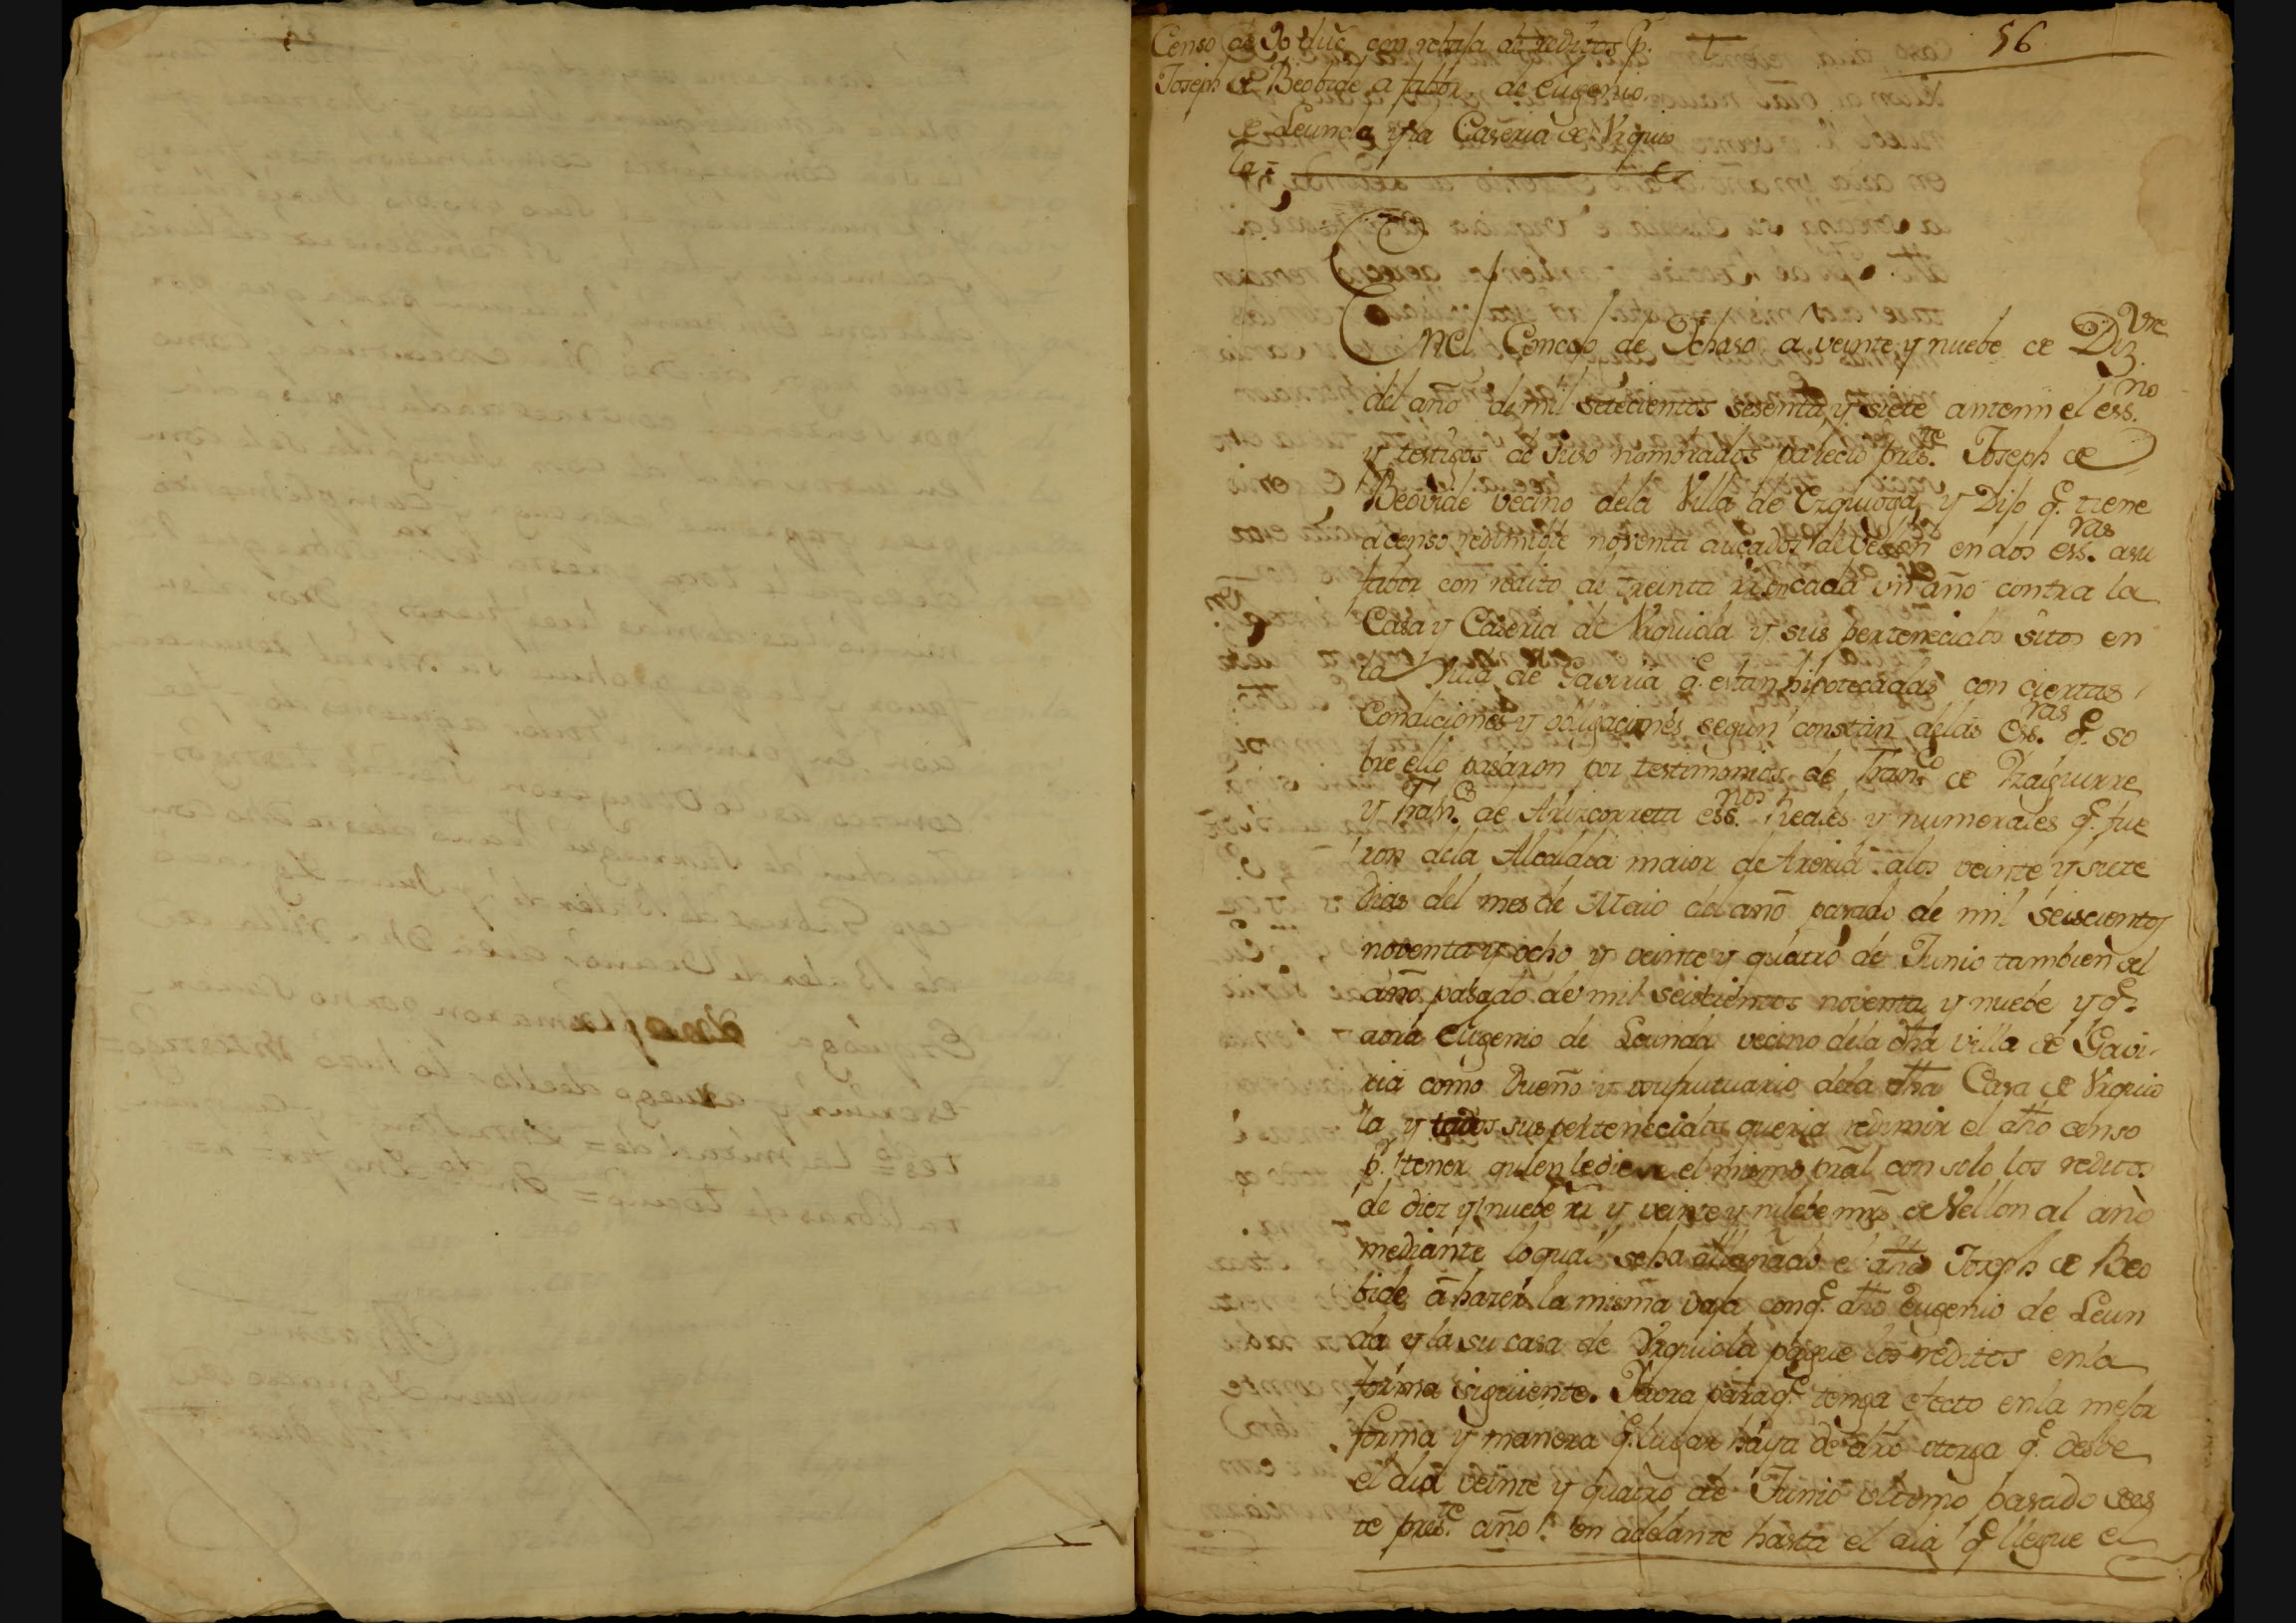 56
Censo de 90 duc.s con rebaja de reditos p.r
Joseph de Beobide a fabor de Eugenio
de Leunda y la Caseria de Vrquio
la =
Enel Concejo de Ychaso a veinte y nuebe de Diz.vre
del año de mil setecientos sesenta y siete antemi el ess.no
y testigos de Iuso nombrados parecio pres.te Joseph de
Beovide vecino dela Villa de Ezquioga, y Dijo q.e tiene
a censo redimible noventa ducados de vellon en dos ess.ras asu
fabor con redito de treinta rr.s en cada un año contra la
Casa y Caseria de Vrquiola y sus pertenecidos sitos en
la Villa de Gaviria q.e estan hipotecadas con ciertas
Condiciones y obligaciones segun constan delas Ess.ras q.e so
bre ello pasaron por testimonios de Fran.co de Yzaguirre
y Fran.co de Arizcorreta ess.nos Reales y numerales q.e fue
ron dela Alcaldia maior de Areria alos veinte y siete
dias del mes de Maio del año pasado de mil seiscientos
noventa y ocho y veinte y quatro de Junio tambien del
año pasado de mil seiscientos noventa y nuebe y q.e
aora Eugenio de Leunda vecino dela dha villa de Gavi-
ria como Dueño y usufrutuario dela dha Casa de Vrquio
la y todos sus pertenecidos queria redimir el dho censo
p.r tener quien le diese el mismo pral con solo los reditos
de diez y nuebe rr.s y veinte y nuebe mrs de Vellon al año
mediante loqual se ha allanado el dho Joseph de Beo
bide â hazer la misma vaja conq.e dho Eugenio de Leun
da y la su casa de Vrquiola pague los reditos enla
forma siguiente. Yaora paraq.e tenga efecto enla mejor
forma y manera q.e lugar haya de dro otorga q.e desde
el dia veinte y quatro de Junio ultimo pasado dees
te pres.te año en adelante hasta el dia q.e llegue el